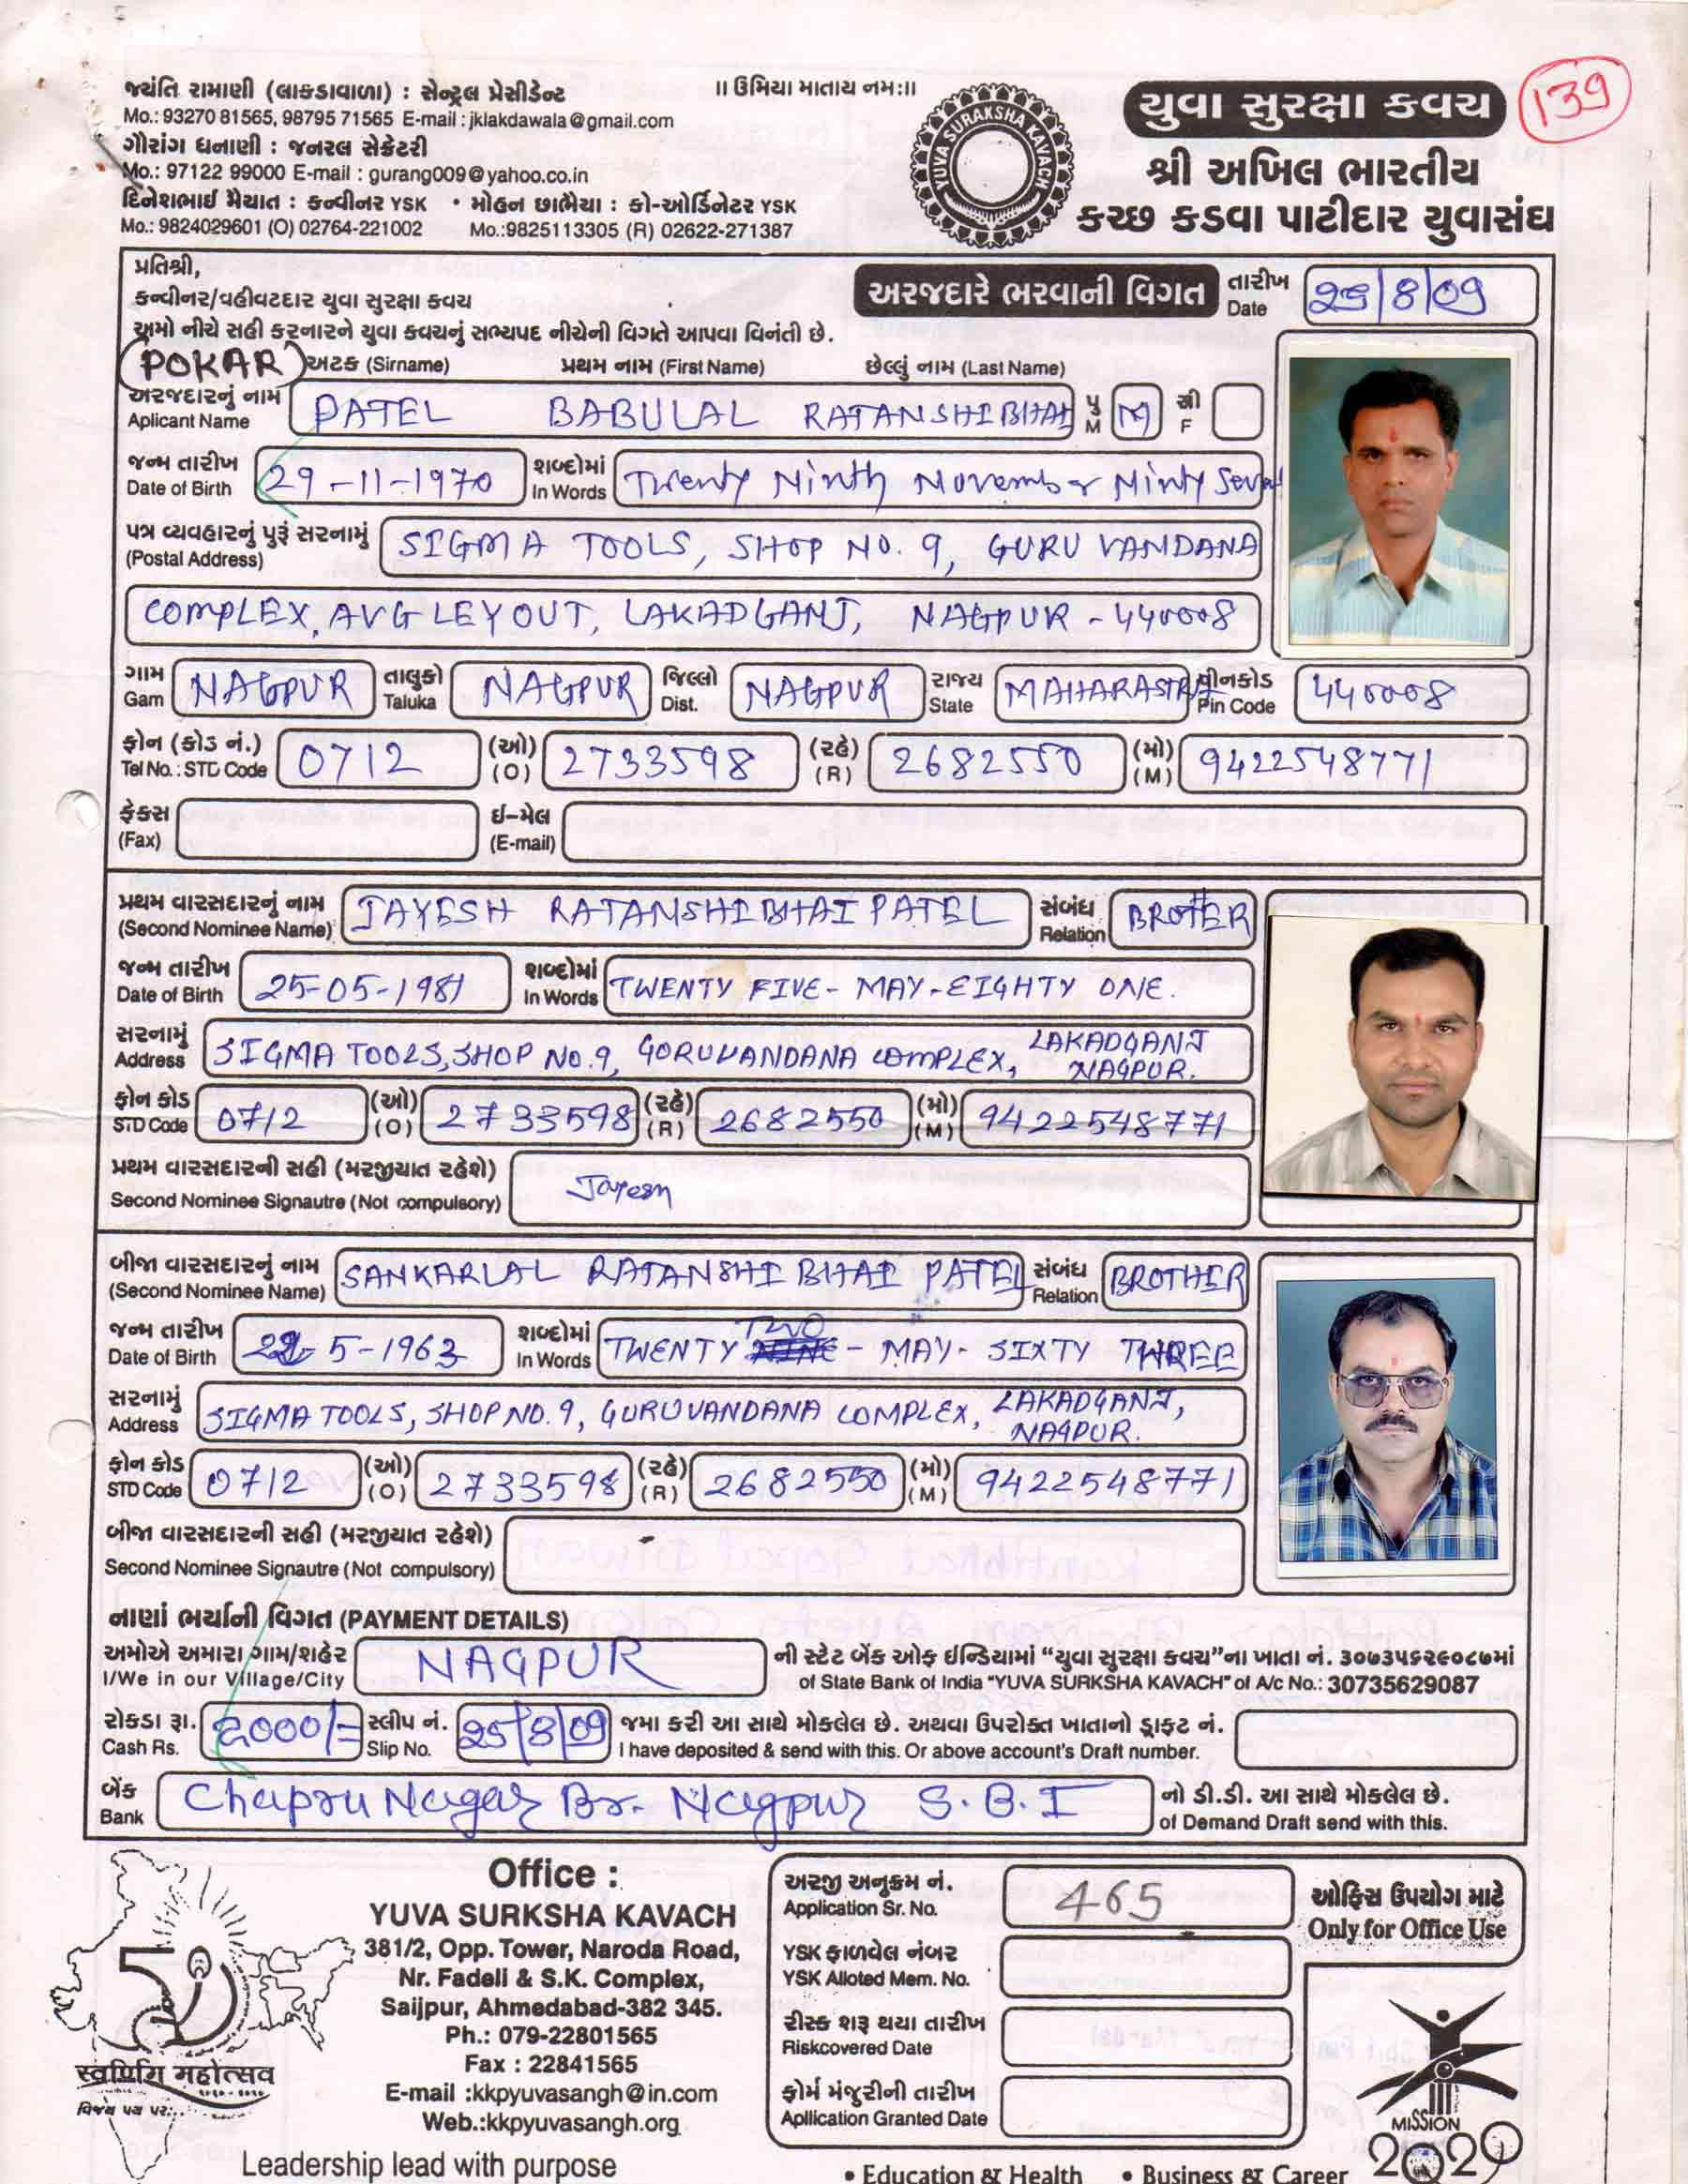 જયંતિ રામાણી (લાકડાવાળા) : સેન્ટ્રલ પ્રેસીડેન્ટ
Mo.: 93270 81565, 98795 71565 E-mail : jklakdawala@gmail.com
ગૌરાંગ ધનાણી : જનરલ સેક્રેટરી
Mo.: 97122 99000 E-mail : gurang009@yahoo.co.in
દિનેશભાઈ મૈયાત : કન્વીનર YSK • મોહન છાભૈયા : કો-ઓર્ડિનેટર YSK
Mo.: 9824029601 (O) 02764-221002 Mo.:9825113305 (R) 02622-271387
॥ ઉમિયા માતાય નમઃ॥
YUVA SURAKSHA KAVACH
યુવા સુરક્ષા કવચ
139
શ્રી અખિલ ભારતીય
કચ્છ કડવા પાટીદાર યુવાસંઘ
પ્રતિશ્રી,
કન્વીનર/વહીવટદાર યુવા સુરક્ષા કવચ
અમો નીચે સહી કરનારને યુવા કવચનું સભ્યપદ નીચેની વિગતે આપવા વિનંતી છે.
અરજદારે ભરવાની વિગત તારીખ Date 25/8/09
POKAR અટક (Sirname) પ્રથમ નામ (First Name) છેલ્લું નામ (Last Name)
અરજદારનું નામ Aplicant Name PATEL BABULAL RATANSHIBHAI પુ M M સ્ત્રી F
જન્મ તારીખ Date of Birth 29-11-1970 શબ્દોમાં In Words Twenty Ninth November Ninty
પત્ર વ્યવહારનું પુરૂં સરનામું (Postal Address) SIGMA TOOLS, SHOP NO. 9, GURU VANDANA
COMPLEX, AVG LEYOUT, LAKADGANJ, NAGPUR - 440008
ગામ Gam NAGPUR તાલુકો Taluka NAGPUR જિલ્લો Dist. NAGPUR રાજ્ય State MAHARASTRA પીનકોડ Pin Code 440008
ફોન (કોડ નં.) Tel No. : STD Code 0712 (ઓ) (O) 2733598 (રહે) (R) 2682550 (મો) (M) 9422548771
ફેકસ (Fax) ઈ-મેલ (E-mail)
પ્રથમ વારસદારનું નામ (Second Nominee Name) JAYESH RATANSHIBHAI PATEL સંબંધ Relation BROTHER
જન્મ તારીખ Date of Birth 25-05-1981 શબ્દોમાં In Words TWENTY FIVE - MAY - EIGHTY ONE.
સરનામું Address SIGMA TOOLS, SHOP NO.9, GORUVANDANA COMPLEX, LAKADGANJ NAGPUR.
ફોન કોડ STD Code 0712 (ઓ) (O) 2733598 (રહે) (R) 2682550 (મો) (M) 9422548771
પ્રથમ વારસદારની સહી (મરજીયાત રહેશે)
Second Nominee Signautre (Not compulsory) Jayesh
બીજા વારસદારનું નામ (Second Nominee Name) SANKARLAL RATANSHI BHAI PATEL સંબંધ Relation BROTHER
જન્મ તારીખ Date of Birth 22-5-1963 શબ્દોમાં In Words TWENTY TWO - MAY - SIXTY THREE
સરનામું Address SIGMA TOOLS, SHOP NO. 9, GURUVANDANA COMPLEX, LAKADGANJ, NAGPUR.
ફોન કોડ STD Code 0712 (ઓ) (O) 2733598 (રહે) (R) 2682550 (મો) (M) 9422548771
બીજા વારસદારની સહી (મરજીયાત રહેશે)
Second Nominee Signautre (Not compulsory)
નાણાં ભર્યાની વિગત (PAYMENT DETAILS)
અમોએ અમારા ગામ/શહેર NAGPUR ની સ્ટેટ બેંક ઓફ ઈન્ડિયામાં “યુવા સુરક્ષા કવચ”ના ખાતા નં. ૩૦૭૩૫૬૨૯૦૮૭માં
I/We in our Village/City of State Bank of India "YUVA SURKSHA KAVACH" of A/c No.: 30735629087
રોકડા રૂા. Cash Rs. 2000/= સ્લીપ નં. Slip No. 25/8/09 જમા કરી આ સાથે મોકલેલ છે. અથવા ઉપરોક્ત ખાતાનો ડ્રાફ્ટ નં.
I have deposited & send with this. Or above account's Draft number.
બેંક Bank Chapru Nagar Br. Nagpur S.B.I નો ડી.ડી. આ સાથે મોકલેલ છે.
of Demand Draft send with this.
Office :
YUVA SURKSHA KAVACH
381/2, Opp. Tower, Naroda Road,
Nr. Fadeli & S.K. Complex,
Saijpur, Ahmedabad-382 345.
Ph.: 079-22801565
Fax : 22841565
E-mail :kkpyuvasangh@in.com
Web.:kkpyuvasangh.org
Leadership lead with purpose
50
स्वर्णिम महोत्सव
અરજી અનુક્રમ નં. Application Sr. No. 465
ઓફિસ ઉપયોગ માટે
Only for Office Use
YSK ફાળવેલ નંબર
YSK Alloted Mem. No.
રીસ્ક શરૂ થયા તારીખ
Riskcovered Date
ફોર્મ મંજુરીની તારીખ
Apllication Granted Date
MISSION
2020
• Education & Health • Business & Career